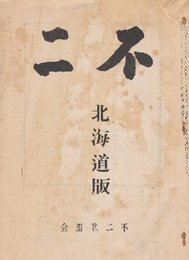 不二
北海道版
不二歌道会